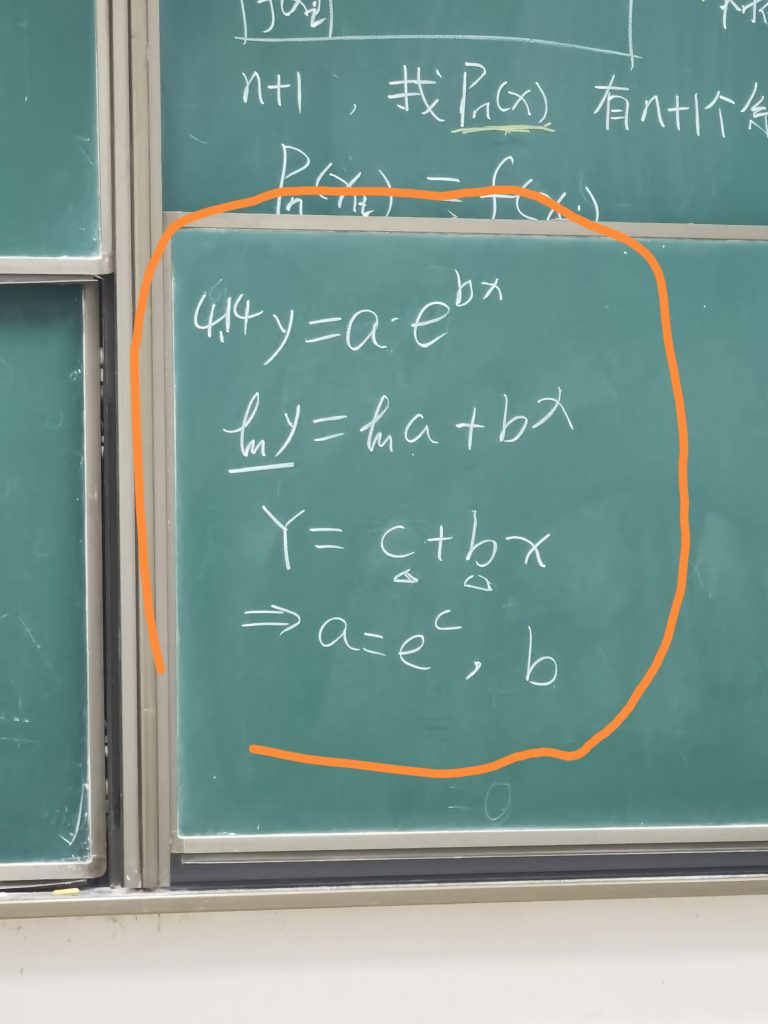 n+1, 找 Pₙ(x) 有n+1个
Pₙ(xᵢ) = f(xᵢ)
4.14 y = a·e^{bx}
ln y = ln a + bx
Y = c + bx
⇒ a = e^c, b
= 0